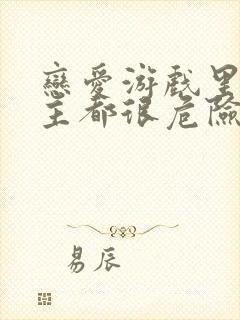 戀愛游戲里
主都很危險
易辰